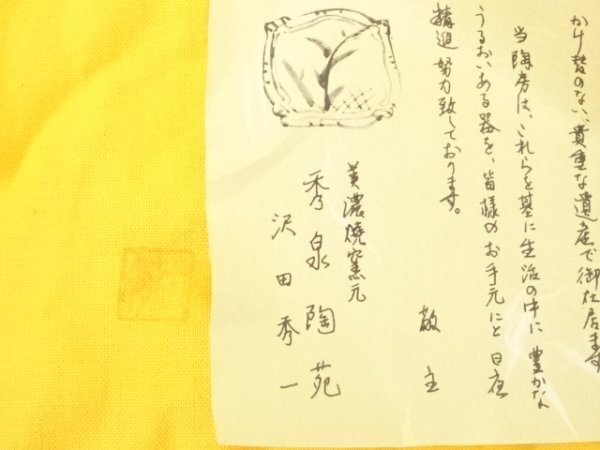 かけ替のない、貴重な遺産で御在居ます
当陶房は、これらを基に生活の中に豊かな
うるおいある器を、皆様のお手元にと日夜
精進努力致しております。
敬主
美濃焼窯元
秀泉陶苑
沢田秀一